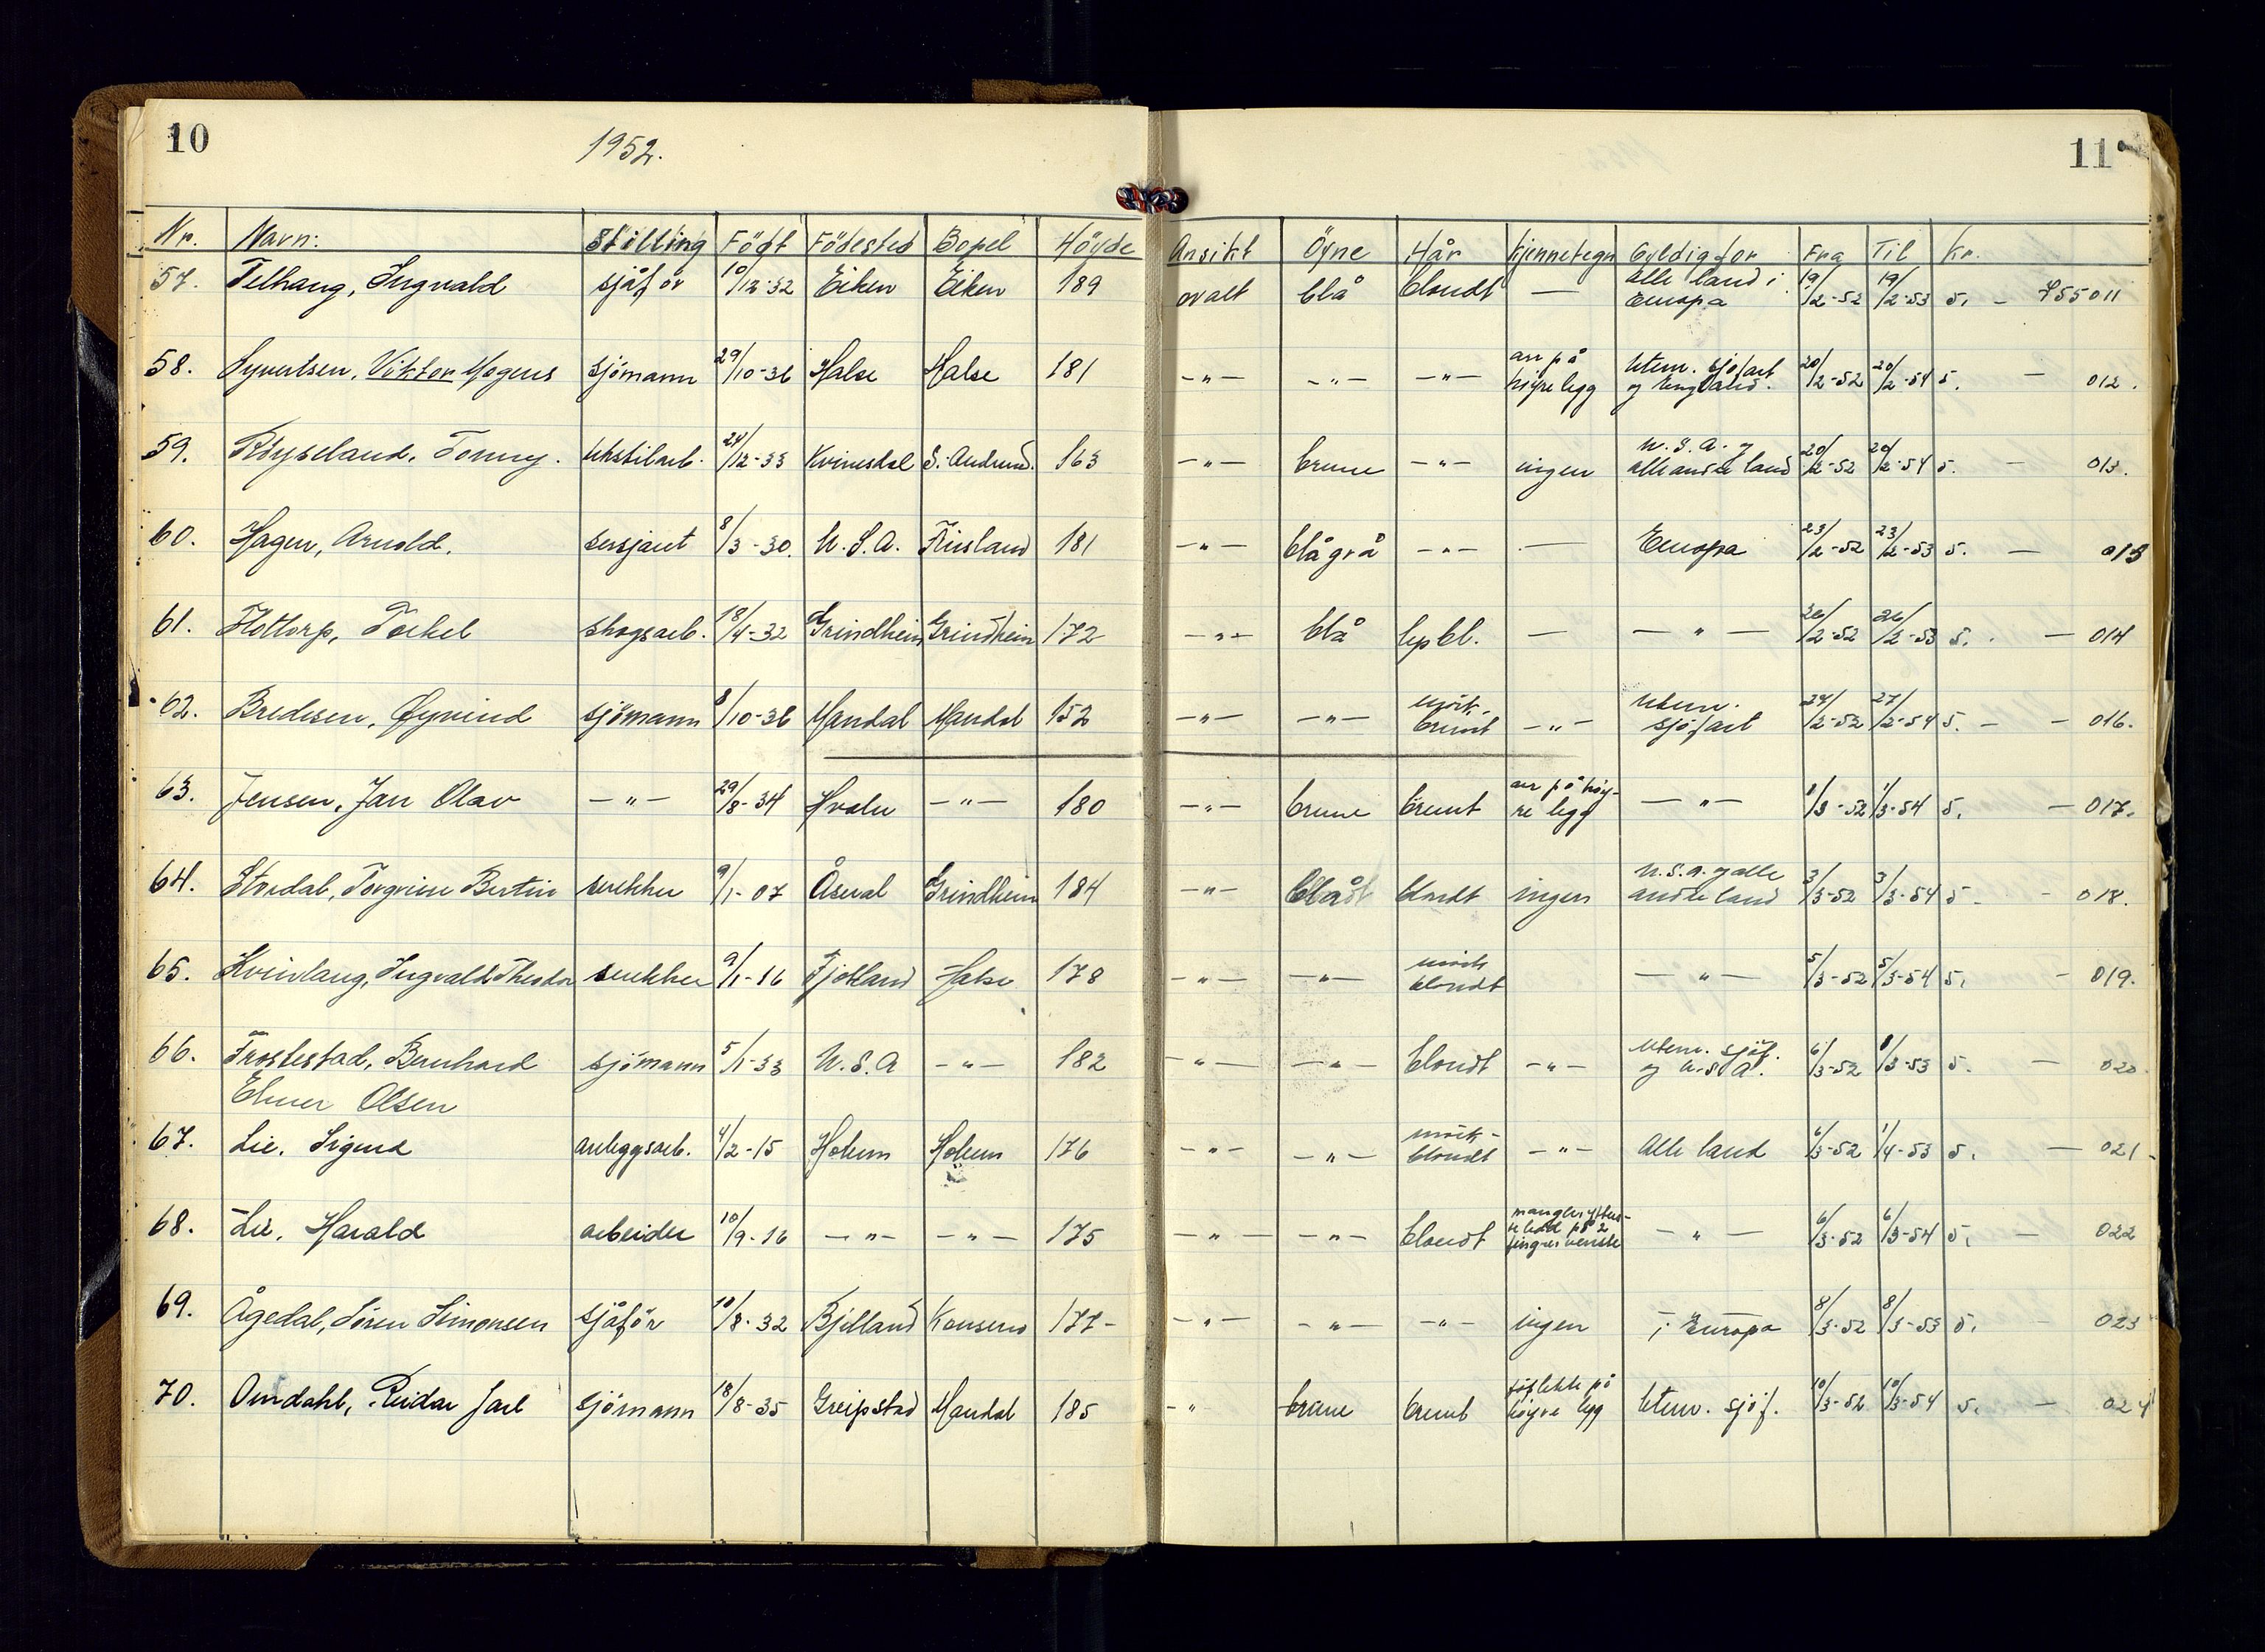 10
1952.
11
Nr. Navn: Stilling Födt Födested Bopel Höyde Ansikt Öyne Hår Kjennetegn Gyldig for Fra Til Kr.
57. Telhaug, Ingvald sjåför 10/12-32 Eiken Eiken 189 ovalt blå blondt — alle land i Europa 19/2-52 19/2-53 5. — 755011
58. Syvertsen, Viktor Mogens sjömann 29/10-36 Halse Halse 181 —"— —"— —"— arr på høyre legg Utenr. sjøfart og England. 20/2-52 20/2-54 5. — 012.
59. Röyseland, Tonny. tekstilarb. 24/12-33 Kvinesdal S. Audned. 163 —"— brune —"— ingen U.S.A. og alle andre land 20/2-52 20/2-54 5. — 013.
60. Hagen, Arnold. sersjant 8/3-30. U.S.A. Finsland 181 —"— blågrå —"— — Europa 23/2-52 23/2-53 5. — 013
61. Flottorp, Torkel skogsarb. 18/4-32 Grindheim Grindheim 172 —"— blå lysbl. — —"— 26/2-52 26/2-53 5. — 014
62. Bredesen, Øyvind sjömann 8/10-36 Mandal Mandal 152 —"— —"— mörk-brunt —"— Utenr. sjøfart 27/2-52 27/2-54 5. — 016.
63. Jensen, Jan Olav —"— 29/8-34 Hvaler —"— 180 —"— brune brunt arr på höyre legg —"— 1/3-52 1/3-54 5. — 017.
64. Stordal, Torgrim Bertin snekker 9/1-07 Åseral Grindheim 184 —"— blå blondt ingen U.S.A. og alle andre land 3/3-52 3/3-54 5. — 018.
65. Kvinlaug, Ingvald Theodor snekker 9/1-16 Fjotland Halse 178 —"— —"— mörk blondt —"— 5/3-52 5/3-54 5. — 019.
66. Trostestad, Bernhard Elmer Olsen sjömann 5/1-33 U.S.A —"— 182 —"— —"— blondt —"— Utenr. sjøf. og U.S.A. 6/3-52 8/3-53 5. — 020
67. Lie, Sigurd anleggsarb. 4/2-15 Holum Holum 176 —"— —"— mörk-blondt —"— Alle land 6/3-52 1/4-53 5. — 021
68. Lie, Harald arbeider 10/9-16 —"— —"— 175 —"— —"— blondt mangler ytterste ledd på 2 fingrer venstre —"— 6/3-52 6/3-54 5. — 022
69. Ågedal, Sören Simonsen sjåför 10/8-32 Bjelland Konsmo 177 —"— —"— —"— ingen i Europa 8/3-52 8/3-53 5. — 023
70. Omdahl, Reidar Jarl sjömann 18/8-35 Greipstad Mandal 185 —"— brune brunt föflekk på höyre legg Utenr. sjöf. 10/3-52 10/3-54 5. — 024